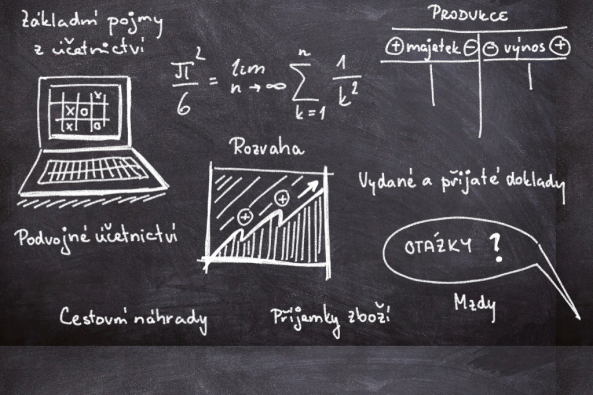 Základní pojmy
z účetnictví
π²/6 = lim n→∞ n ∑ k=1 1/k²
PRODUKCE
⊕ majetek ⊖ ⊖ výnos ⊕
x
x o
x o
Rozvaha
⊕ ⊕
Vydané a přijaté doklady
Podvojné účetnictví
OTÁZKY ?
Cestovní náhrady
Příjemky zboží
Mzdy